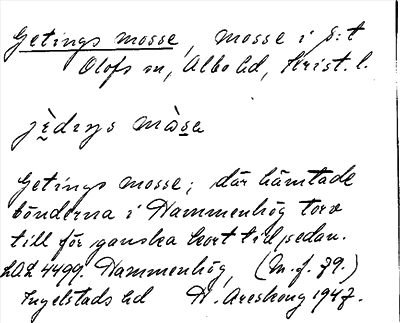 Getings mosse, mosse i S:t
Olofs sn, Albo hd, Krist. l.
Getings mosse; där hämtade
bönderna i Hammenhög torv
till för ganska kort tid sedan.
LAL 4499. Hammenhög, (M.f. 79.)
Ingelstads hd H. Areskoug 1947.